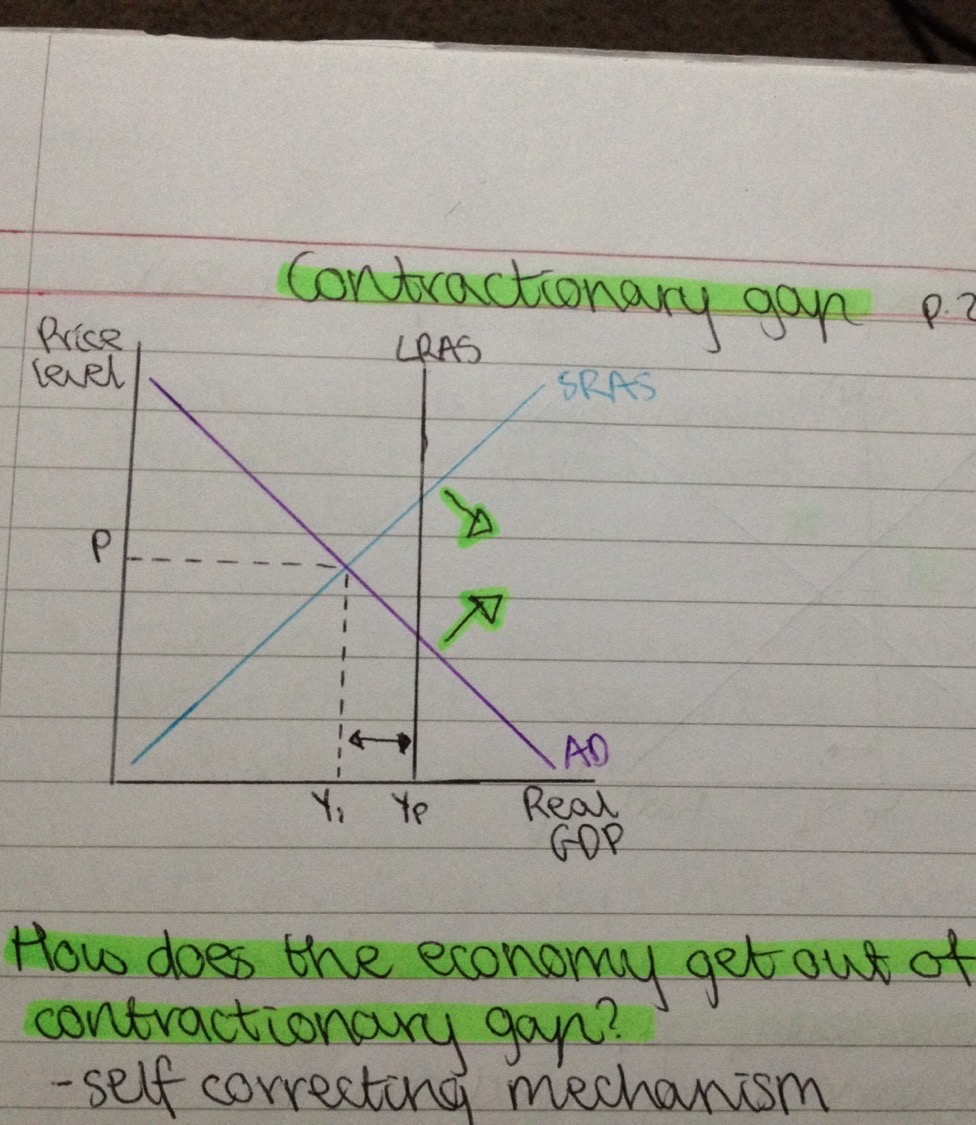 Contractionary gap p.2
Price
level
LRAS
SRAS
P
AD
Y₁ Yp Real
GDP
How does the economy get out of
contractionary gap?
-self correcting mechanism